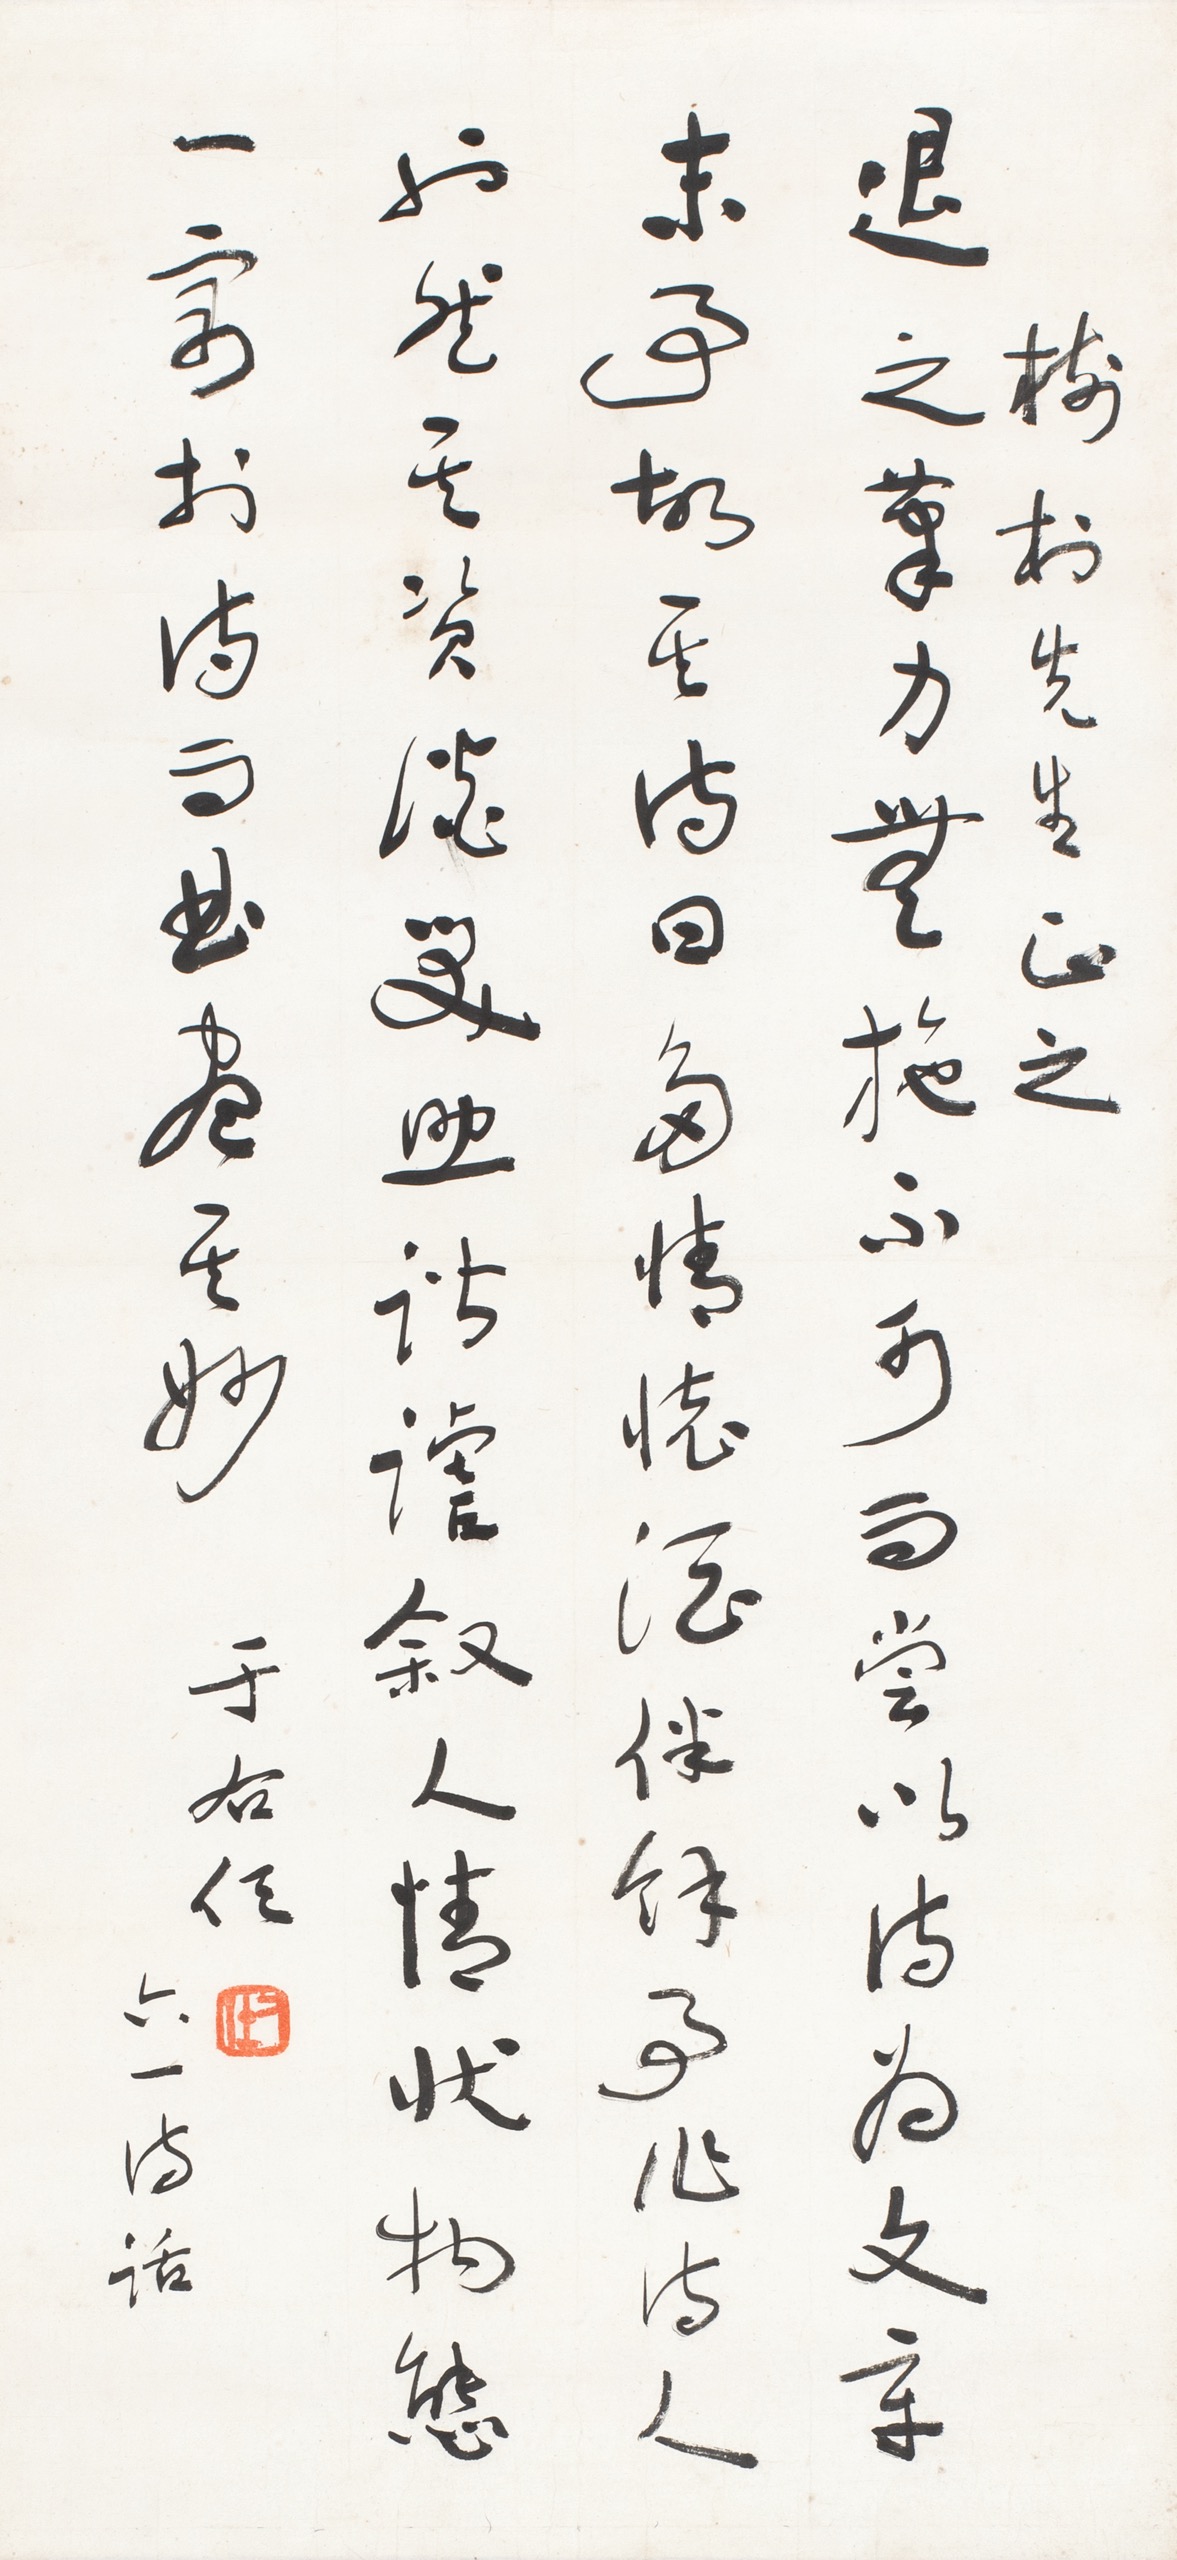 樹村先生正之
退之筆力無施不可而嘗以詩為文章
末事故其詩曰多情懷酒伴餘事作詩人
也然其資談笑助諧謔叙人情狀物態
一寓於詩而曲盡其妙
于右任
右任
六一詩話